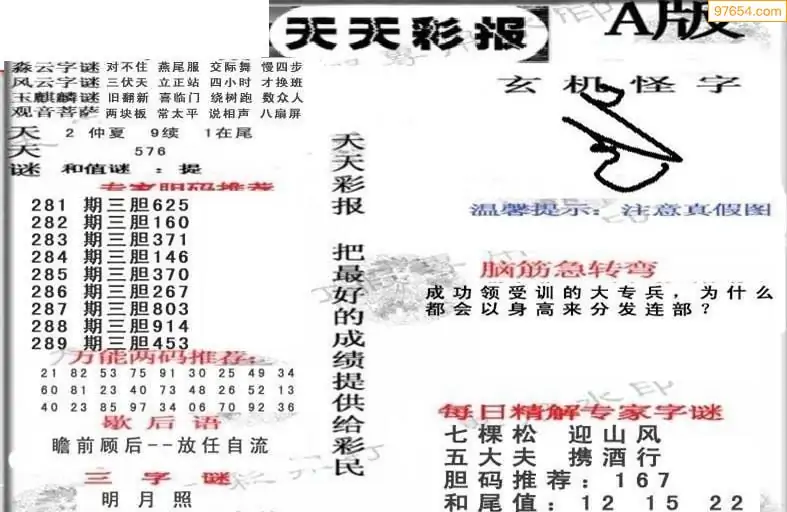 97654.com
天天彩报
A版
淼云字谜 对不住 燕尾服 交际舞 慢四步
风云字谜 三伏天 立正站 四小时 才换班
玉麒麟谜 旧翻新 喜临门 绕树跑 数众人
观音菩萨 两块板 常太平 说相声 八扇屏
天 2 仲夏 9续 1在尾
天 576
谜 和值谜 :提
专家胆码推荐
281 期三胆625
282 期三胆160
283 期三胆371
284 期三胆146
285 期三胆370
286 期三胆267
287 期三胆803
288 期三胆914
289 期三胆453
万能两码推荐:
21 82 53 75 91 30 25 49 34
60 81 23 40 73 48 26 52 13
40 23 85 97 34 06 70 92 36
歇后语
瞻前顾后--放任自流
三字谜
明月照
天天彩报 把最好的成绩提供给彩民
玄机怪字
温馨提示: 注意真假图
脑筋急转弯
成功领受训的大专兵，为什么
都会以身高来分发连部？
每日精解专家字谜
七棵松 迎山风
五大夫 携酒行
胆码推荐: 167
和尾值: 12 15 22